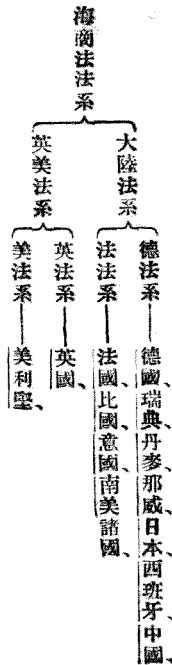 海商法法系
大陸法系
德法系——德國、瑞典、丹麥、那威、日本、西班牙、中國、
法法系——法國、比國、意國、南美諸國、
英美法系
英法系——英國、
美法系——美利堅、